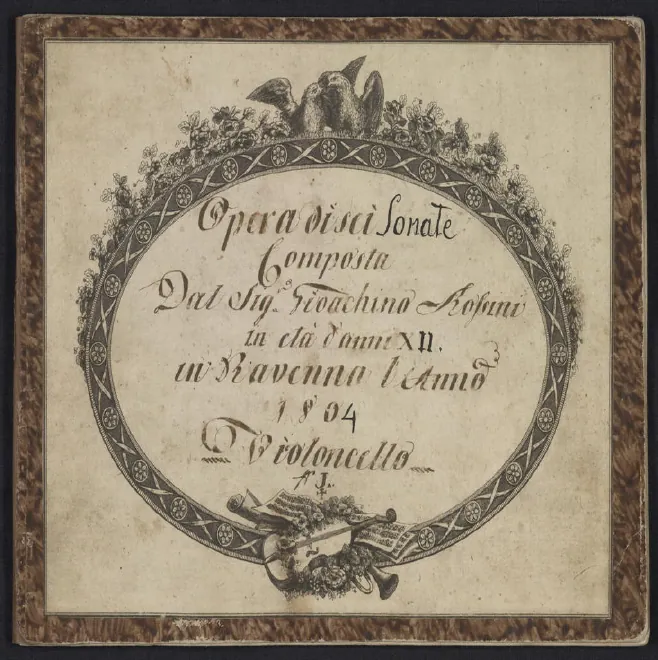 Opera di sei Sonate
Composta
Dal Sig.o Gioachino Rossini
in età d'anni XII.
in Ravenna l'Anno
1804
Violoncello